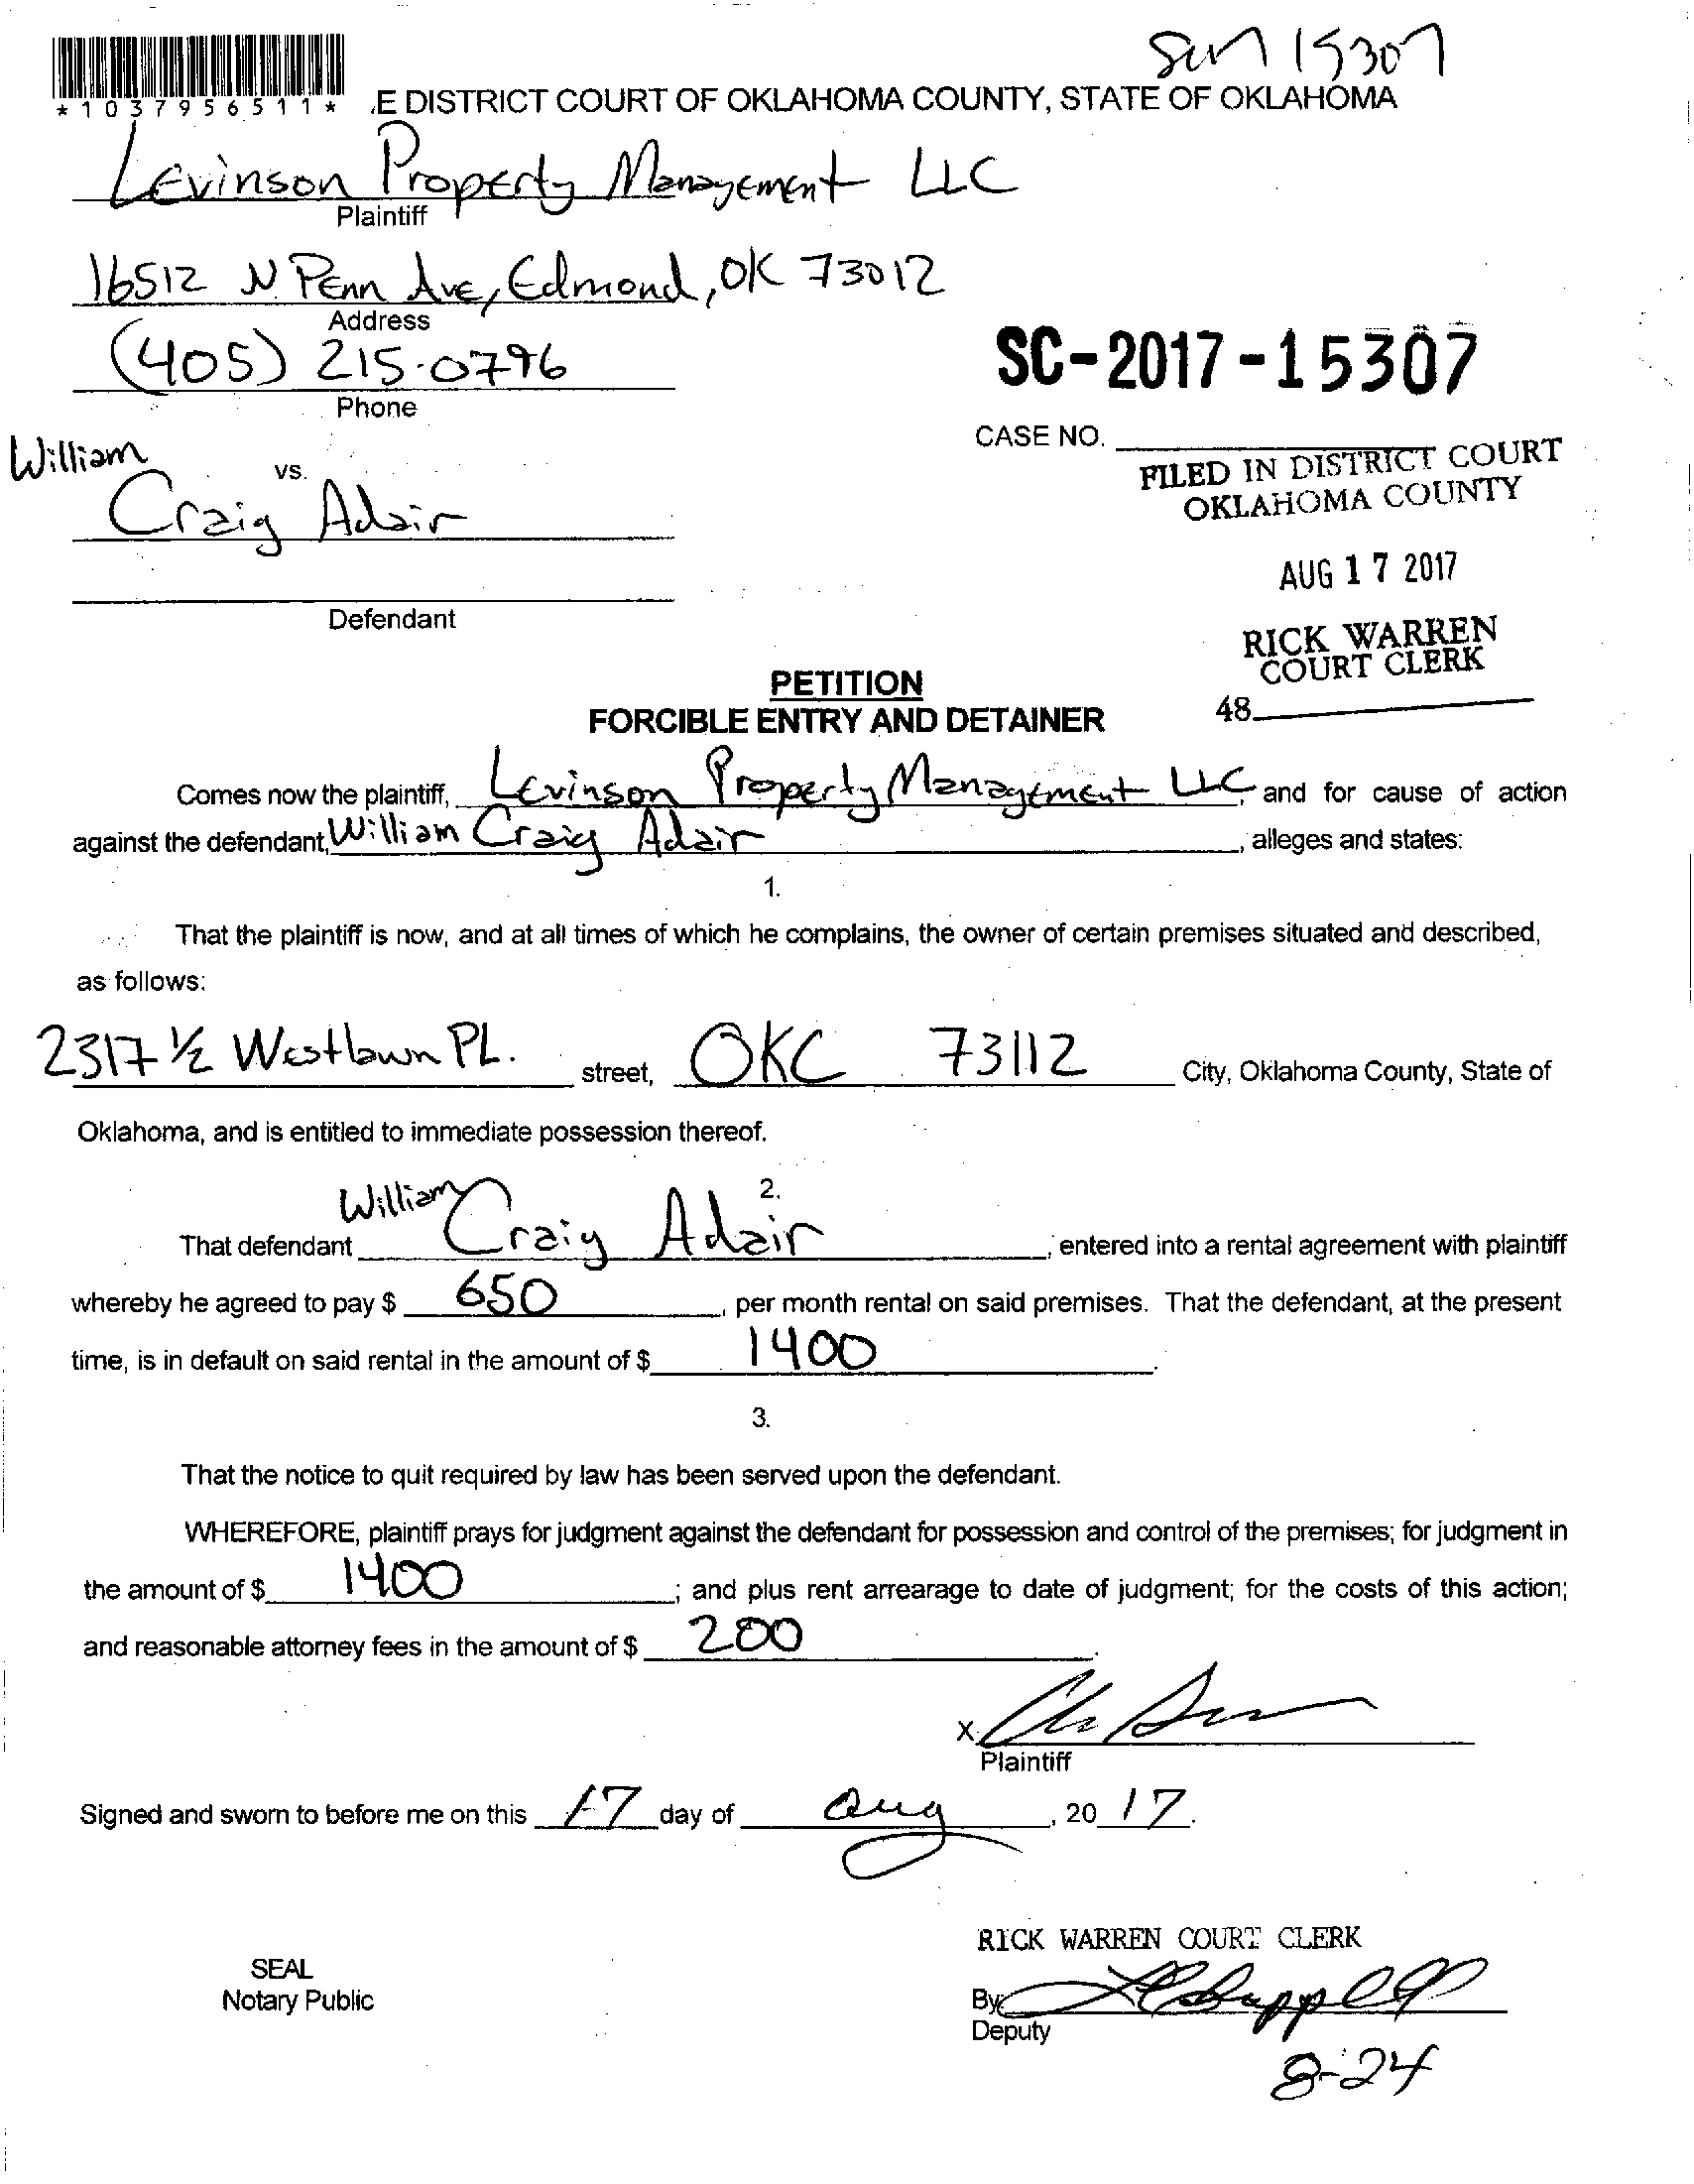 15307
*1037956511*
E DISTRICT COURT OF OKLAHOMA COUNTY, STATE OF OKLAHOMA
Levinson Property Management LLC
Plaintiff
16512 N. Penn Ave, Edmond, OK 73012
Address
(405) 215-0796
Phone
SC-2017-15307
CASE NO.
William
vs.
Craig Adair
FILED IN DISTRICT COURT
OKLAHOMA COUNTY
AUG 17 2017
Defendant
RICK WARREN
COURT CLERK
48
PETITION
FORCIBLE ENTRY AND DETAINER
Comes now the plaintiff, Levinson Property Management LLC, and for cause of action
against the defendant, William Craig Adair, alleges and states:
1.
That the plaintiff is now, and at all times of which he complains, the owner of certain premises situated and described,
as follows:
2317 ½ Westlawn PL. street, OKC 73112 City, Oklahoma County, State of
Oklahoma, and is entitled to immediate possession thereof.
2.
That defendant William Craig Adair, entered into a rental agreement with plaintiff
whereby he agreed to pay $ 650, per month rental on said premises. That the defendant, at the present
time, is in default on said rental in the amount of $ 1400.
3.
That the notice to quit required by law has been served upon the defendant.
WHEREFORE, plaintiff prays for judgment against the defendant for possession and control of the premises; for judgment in
the amount of $ 1400; and plus rent arrearage to date of judgment; for the costs of this action;
and reasonable attorney fees in the amount of $ 200.
X
Plaintiff
Signed and sworn to before me on this 17 day of Aug, 20 17.
RICK WARREN COURT CLERK
SEAL
Notary Public
By
Deputy
8-24